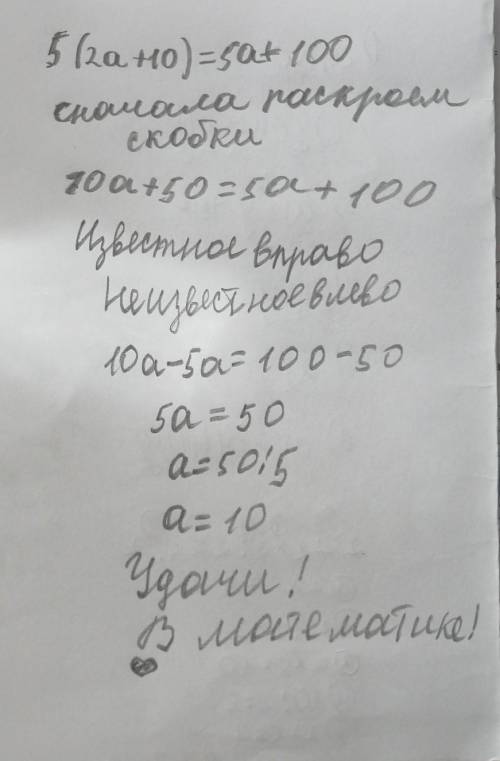 5(2a+10)=5a+100
сначала раскроем
скобки
10a+50=5a+100
Известное вправо
Неизвестное влево
10a-5a=100-50
5a=50
a=50:5
a=10
Удачи!
В математике!